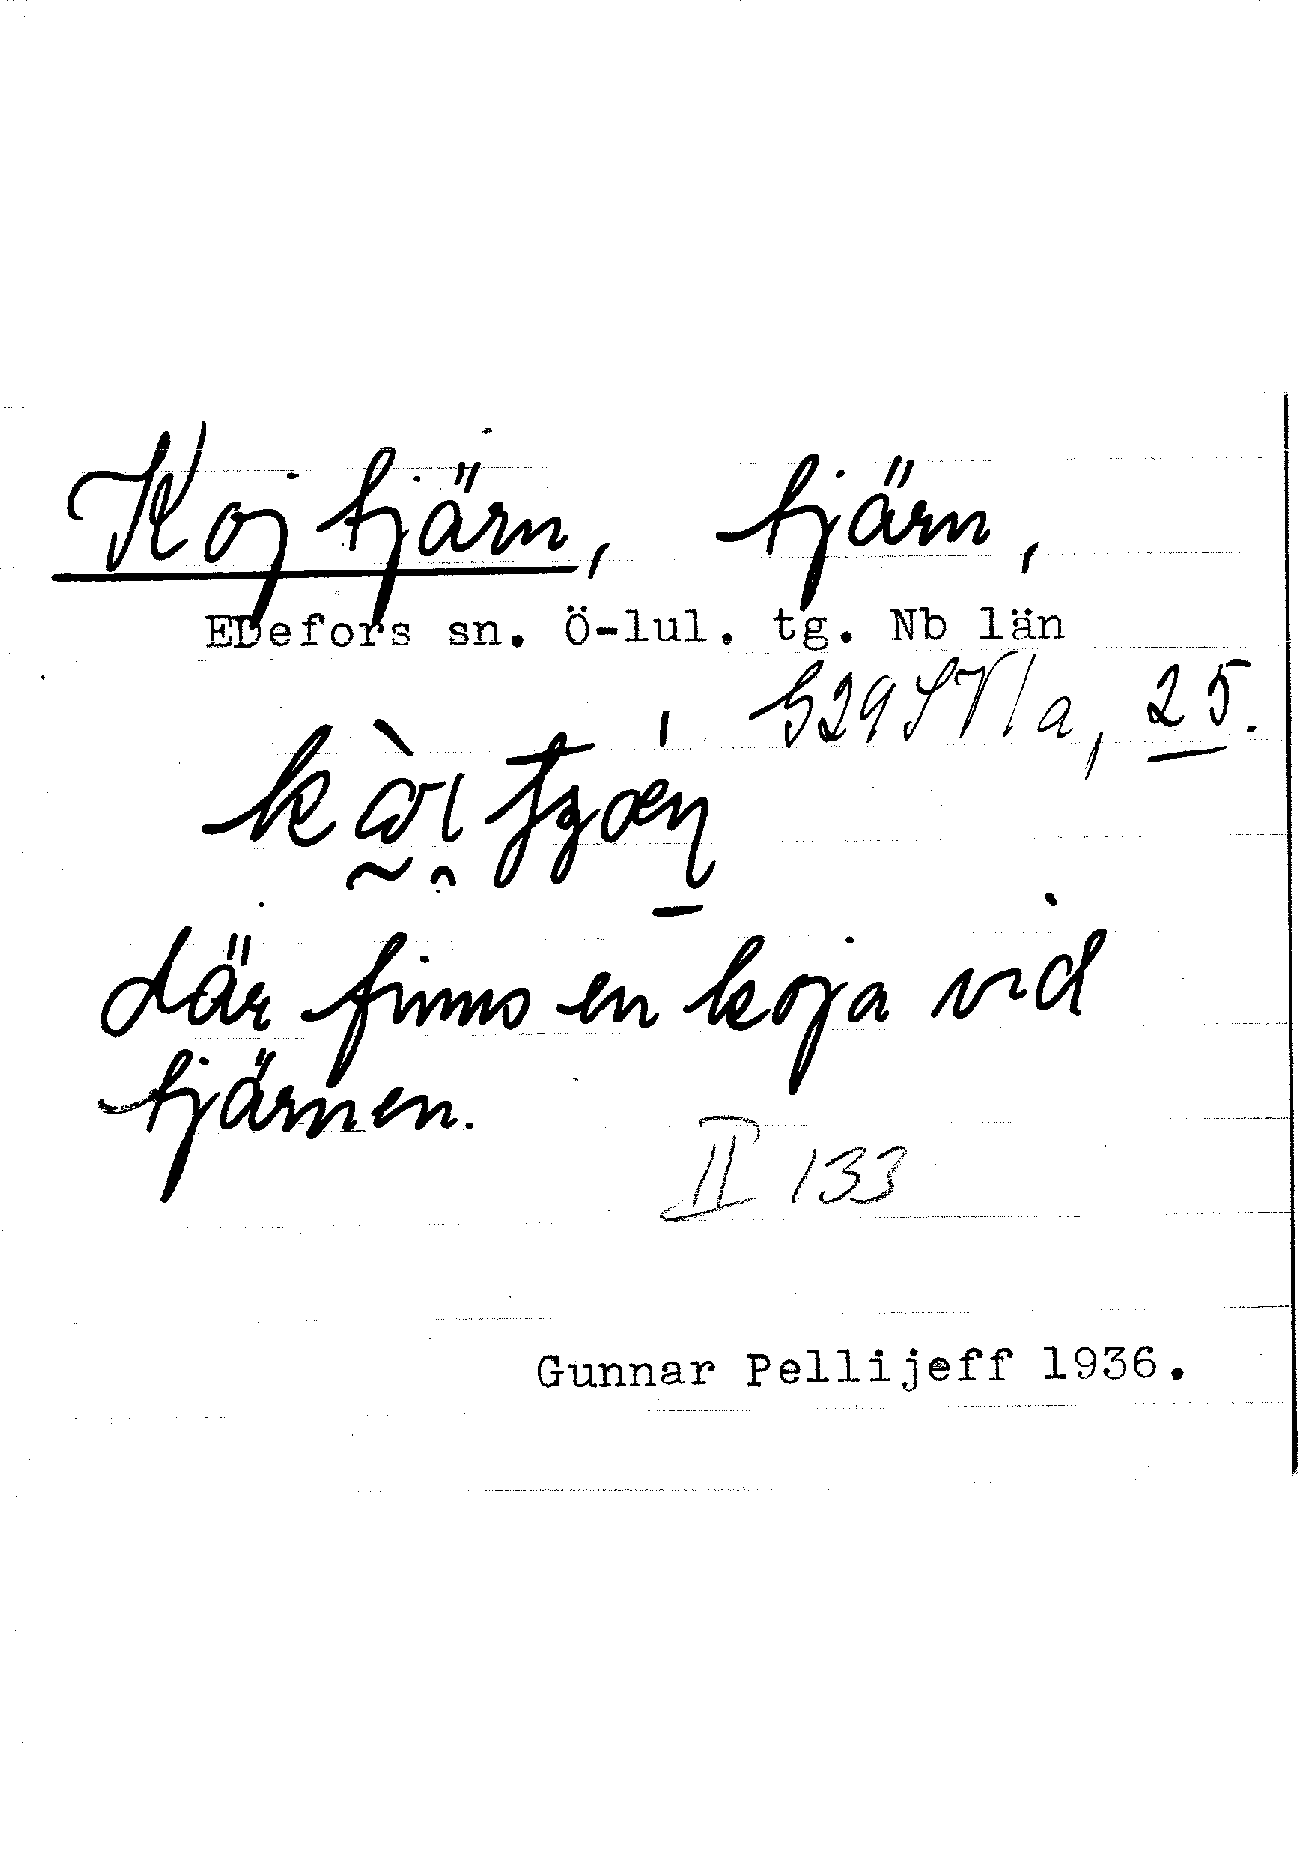 Kojtjärn, tjärn,
EDefors sn. Ö-lul. tg. Nb län
25.
där finns en koja vid
tjärnen.
II 133
Gunnar Pellijeff 1936.